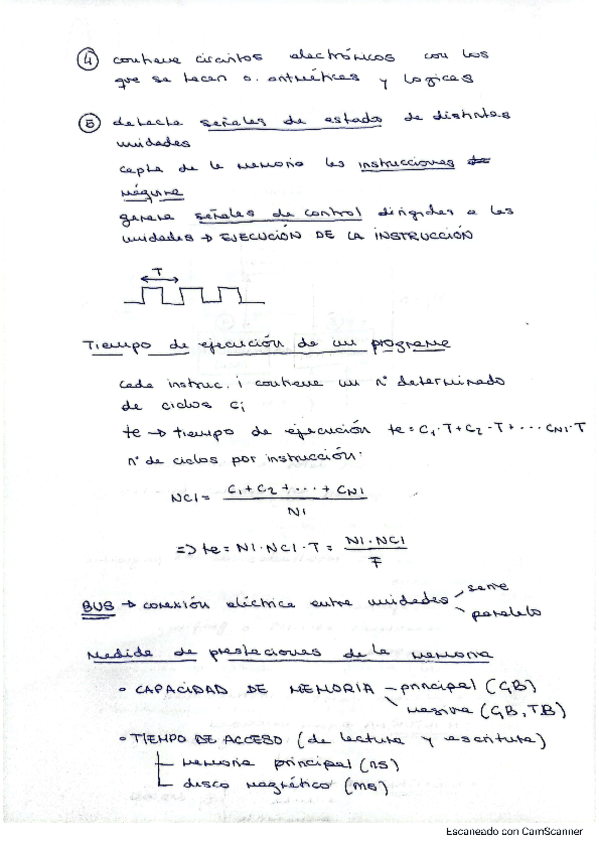 ④ contiene circuitos electrónicos con los
que se hacen o. aritméticas y lógicas
⑤ detecta señales de estado de distintas
unidades
capta de la memoria las instrucciones
máquina
genera señales de control dirigidas a las
unidades → EJECUCIÓN DE LA INSTRUCCIÓN
T
Tiempo de ejecución de un programa
cada instruc. i contiene un nº determinado
de ciclos Ci
te → tiempo de ejecución te = C1·T + C2·T + ··· CNI·T
nº de ciclos por instrucción:
NCI = (C1 + C2 + ··· + CNI) / NI
=> te = NI·NCI·T = NI·NCI / F
BUS → conexión eléctrica entre unidades serie
paralelo
Medida de prestaciones de la memoria
• CAPACIDAD DE MEMORIA – principal (GB)
masiva (GB, TB)
• TIEMPO DE ACCESO (de lectura y escritura)
memoria principal (ns)
disco magnético (ms)
Escaneado con CamScanner